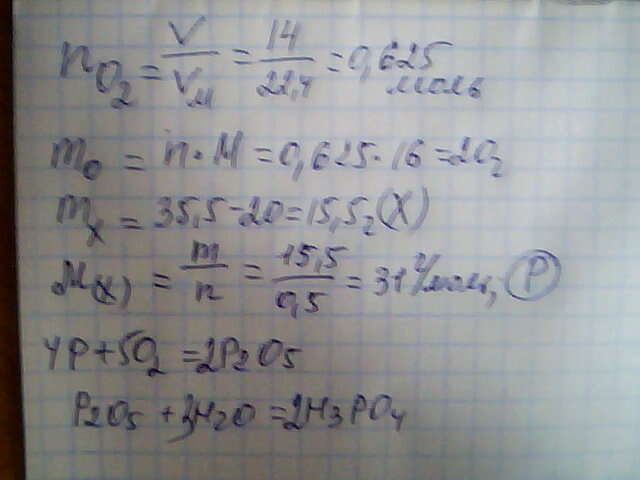 nO₂ = V/Vм = 14/22,4 = 0,625 моль
mо = n·M = 0,625·16 = 20г
mх = 35,5-20 = 15,5г (X)
M(x) = m/n = 15,5/0,5 = 31 г/моль, P
4P + 5O₂ = 2P₂O₅
P₂O₅ + 3H₂O = 2H₃PO₄